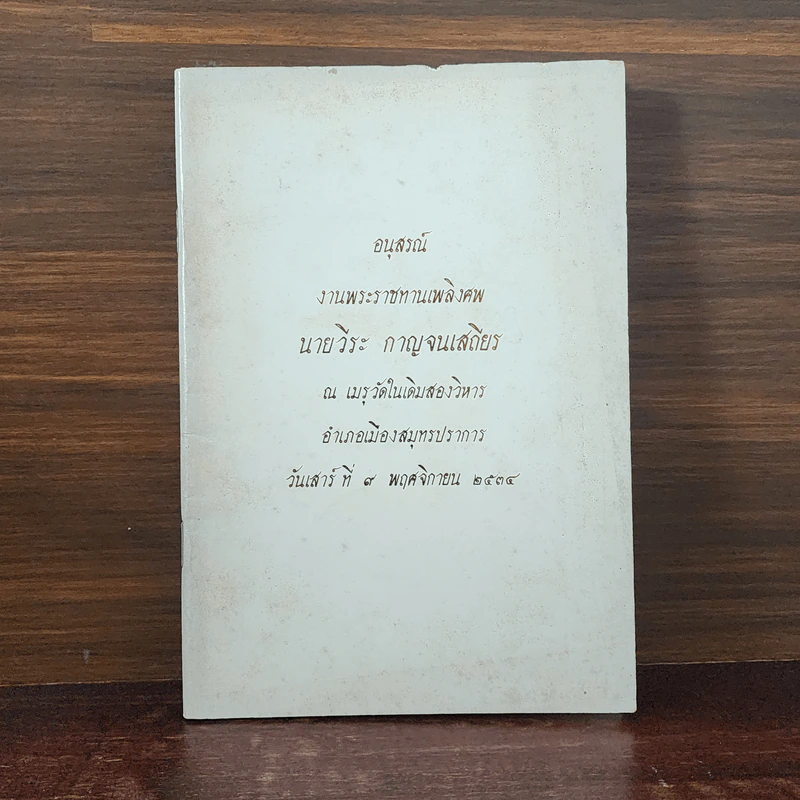 อนุสรณ์
งานพระราชทานเพลิงศพ
นายวีระ กาญจนเสถียร
ณ เมรุวัดในเดิมสองวิหาร
อำเภอเมืองสมุทรปราการ
วันเสาร์ ที่ ๙ พฤศจิกายน ๒๕๓๔